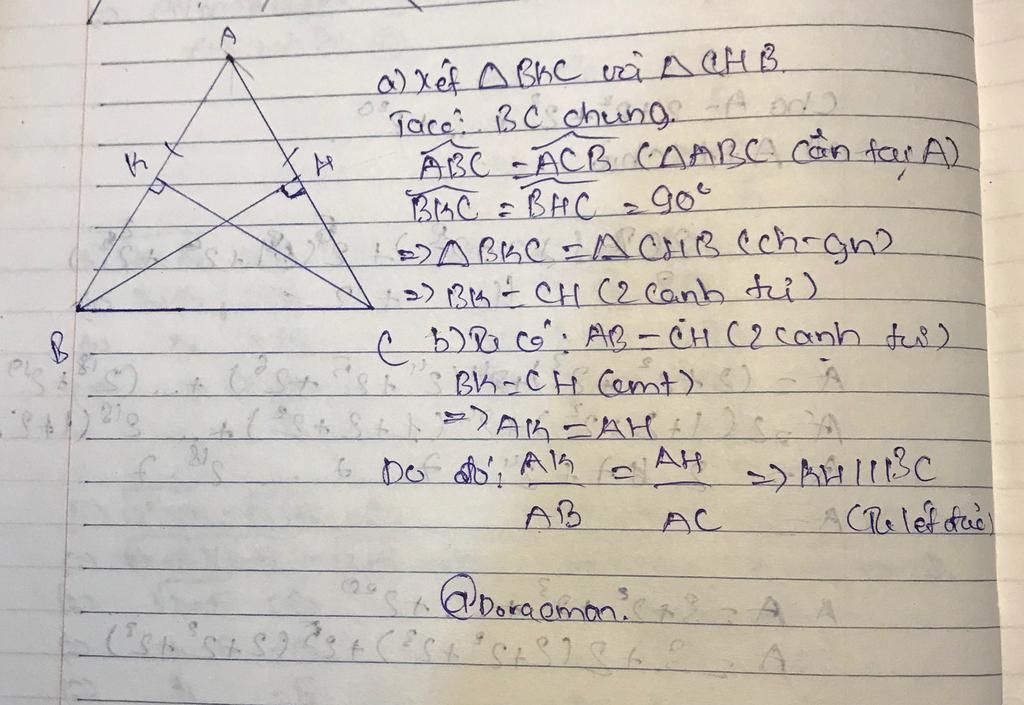 A
K
H
B
C
a) Xét ΔBKC và ΔCHB.
Ta có: BC chung.
ABC = ACB (ΔABC cân tại A)
BKC = BHC = 90°
=> ΔBKC = ΔCHB (ch-gn)
=> BK = CH (2 cạnh tư)
b) có: AB = CH (2 cạnh tư)
BK = CH (cmt)
=> AK = AH
Do đó: AK/AB = AH/AC => KH // BC
@Doraeman.